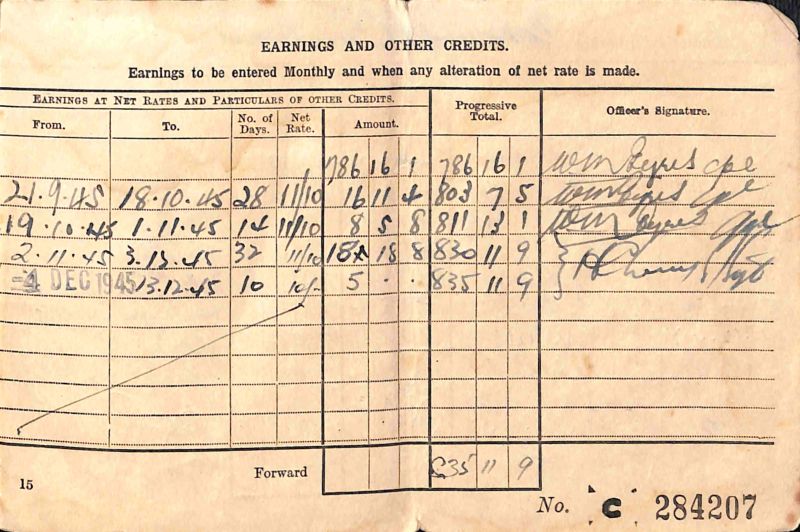 EARNINGS AND OTHER CREDITS.
Earnings to be entered Monthly and when any alteration of net rate is made.
EARNINGS AT NET RATES AND PARTICULARS OF OTHER CREDITS.
Progressive Total.
Officer's Signature.
From. To. No. of Days. Net Rate. Amount.
786 16 1 786 16 1 Cpl
21.9.45 18.10.45 28 11/10 16 11 4 803 7 5 Cpl
19.10.45 1.11.45 14 11/10 8 5 8 811 13 1
2.11.45 3.12.45 32 11/10 18 18 8 830 11 9
4 DEC 1945 13.12.45 10 10/- 5 . . 835 11 9 Sgt
Forward 835 11 9
15
No. C 284207